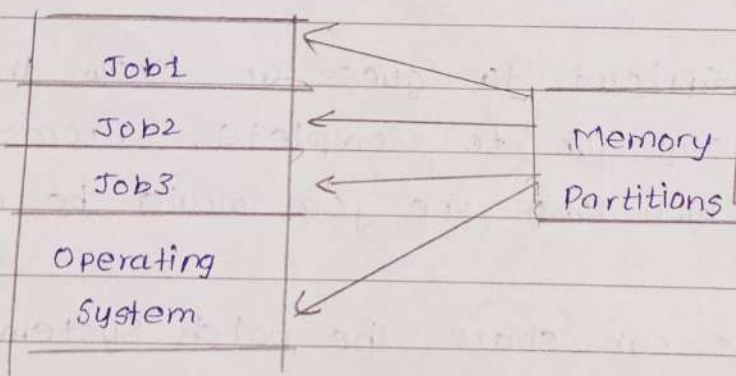 Job1
Job2
Job3
Operating
System
Memory
Partitions